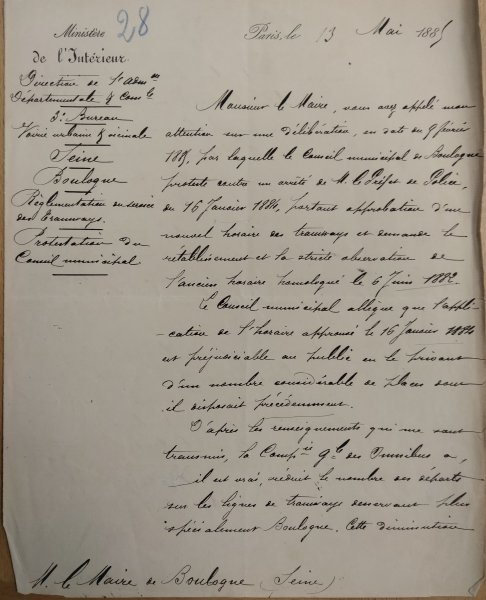 Ministère
de l'Intérieur.
28
Paris, le 13 Mai 1885
Direction de l'Adm on
Départementale & Com le
3e Bureau
Voirie urbaine & vicinale
Seine
Boulogne
Réglementation du service
des Tramways.
Protestation du
Conseil municipal
Monsieur le Maire, vous avez appelé mon
attention sur une délibération, en date du 9 février
1885, par laquelle le Conseil municipal de Boulogne
proteste contre un arrêté de M. le Préfet de Police,
du 16 Janvier 1884, portant approbation d'un
nouvel horaire des tramways et demande le
rétablissement et la stricte observation de
l'ancien horaire homologué le 6 Juin 1882.
Le Conseil municipal allègue que l'appli-
cation de l'horaire approuvé le 16 Janvier 1884
est préjudiciable au public en le privant
d'un nombre considérable de places dont
il disposait précédemment.
D'après les renseignements qui me sont
transmis, la Comp ie g le des Omnibus a,
il est vrai, réduit le nombre des départs
sur les lignes de tramways desservant plus
spécialement Boulogne. Cette diminution
M. le Maire de Boulogne (Seine)